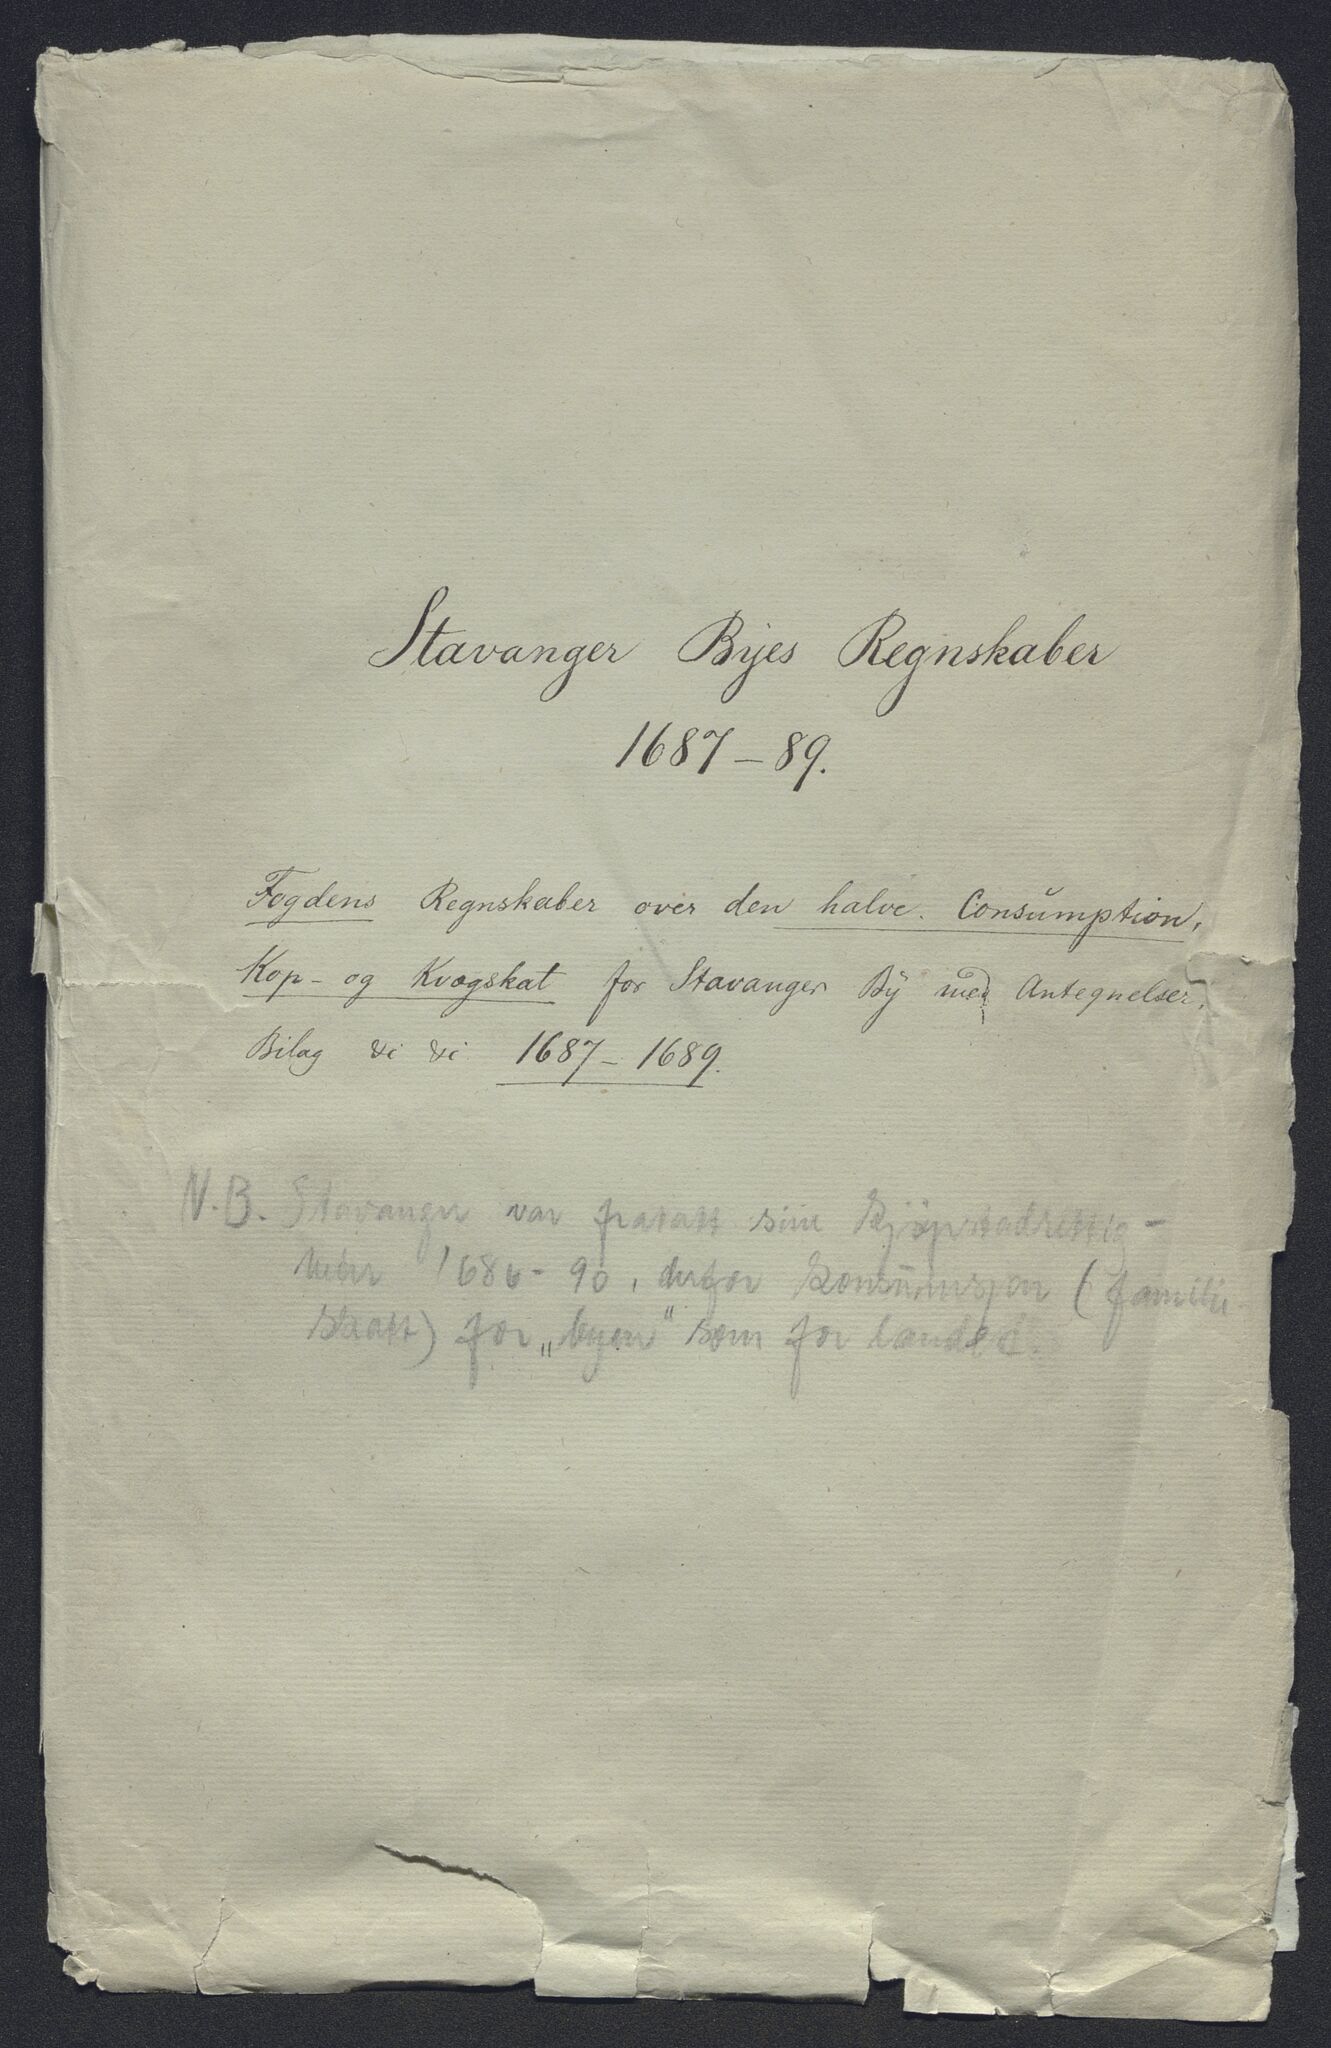 Stavanger Byes Regnskaber
1687-89.
Fogdens Regnskaber over den halve Consŭmption,
Kop- og Kvægskat for Stavanger Bÿ med Antegnelser,
Bilag &c &c 1687-1689.
N.B. Stavanger var fratatt sine kjøpstadrettig-
heter 1686-90, derfor konsŭmsjon (familie-
skatt) for „byen“ som for landet.